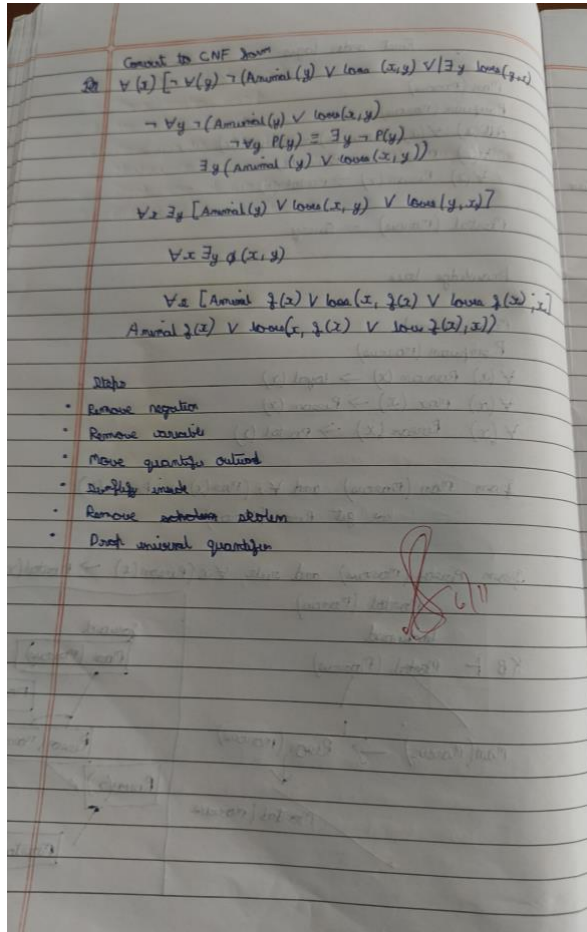 Convert to CNF form
∀(x) [¬∀(y) ¬(Animal(y) ∨ loves (x,y) ∨ [∃y loves(y,x)
¬∀y ¬(Animal(y) ∨ loves(x,y)
¬∀y P(y) = ∃y ¬P(y)
∃y(Animal (y) ∨ loves(x,y))
∀x ∃y [Animal(y) ∨ loves(x,y) ∨ loves(y,x)]
∀x ∃y φ(x,y)
∀x [Animal f(x) ∨ loves(x, f(x) ∨ loves f(x), x]
Animal f(x) ∨ loves(x, f(x) ∨ loves f(x), x))
Steps
• Remove negation
• Remove variable
• Move quantifier outward
• Simplify inside
• Remove skolem
• Drop universal quantifier
6/11